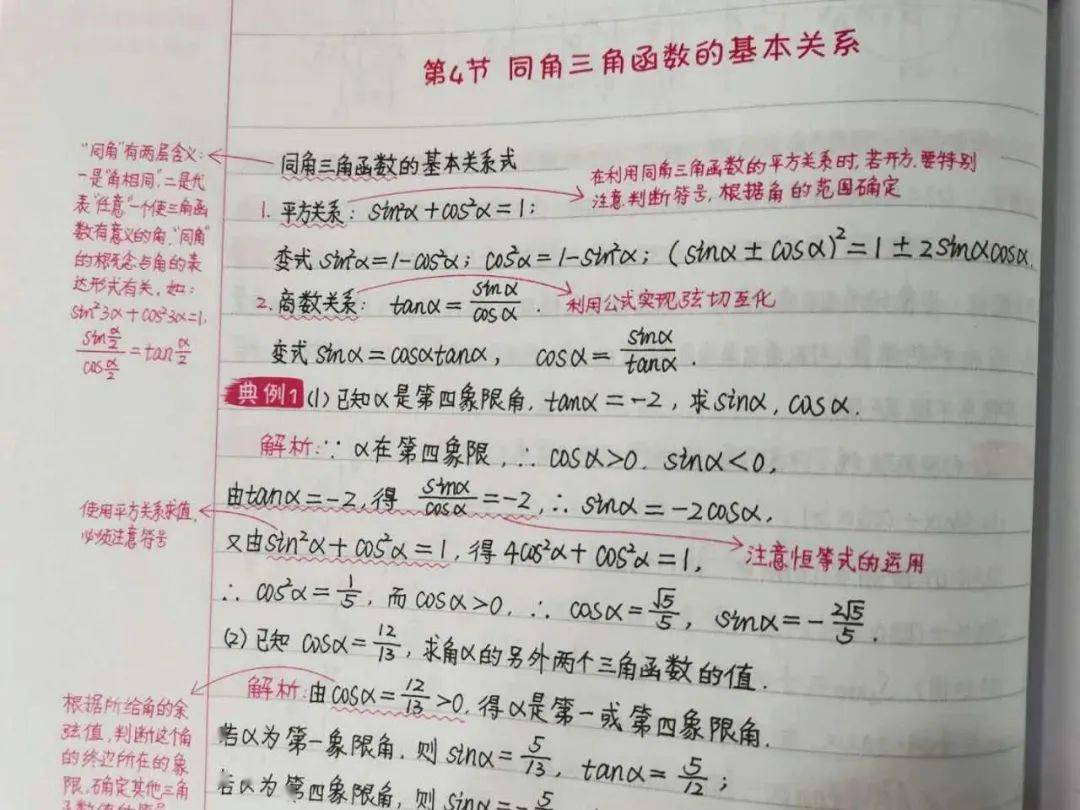 第4节 同角三角函数的基本关系
"同角"有两层含义:
一是"角相同",二是代
表"任意"一个使三角函
数有意义的角,"同角"
的概念与角的表
达形式有关,如:
sin²3α+cos²3α=1,
sin(α/2)/cos(α/2)=tan(α/2)
同角三角函数的基本关系式
在利用同角三角函数的平方关系时,若开方,要特别
注意判断符号,根据角的范围确定
1. 平方关系: sin²α+cos²α=1;
变式 sin²α=1-cos²α; cos²α=1-sin²α; (sinα±cosα)²=1±2sinαcosα.
2. 商数关系: tanα=sinα/cosα.
利用公式实现弦切互化
变式 sinα=cosαtanα, cosα=sinα/tanα.
典例1 (1)已知α是第四象限角, tanα=-2, 求sinα, cosα.
解析:∵ α在第四象限, ∴ cosα>0, sinα<0,
由tanα=-2, 得 sinα/cosα=-2, ∴ sinα=-2cosα,
使用平方关系求值,
必须注意符号
又由sin²α+cos²α=1, 得 4cos²α+cos²α=1,
注意恒等式的运用
∴ cos²α=1/5, 而 cosα>0, ∴ cosα=√5/5, sinα=-2√5/5.
(2)已知 cosα=12/13, 求角α的另外两个三角函数的值.
解析:由cosα=12/13>0, 得α是第一或第四象限角.
根据所给角的余
弦值,判断这个角
的终边所在的象
限,确定其他三角
若α为第一象限角, 则 sinα=5/13, tanα=5/12;
若α为第四象限角, 则 sinα=-5